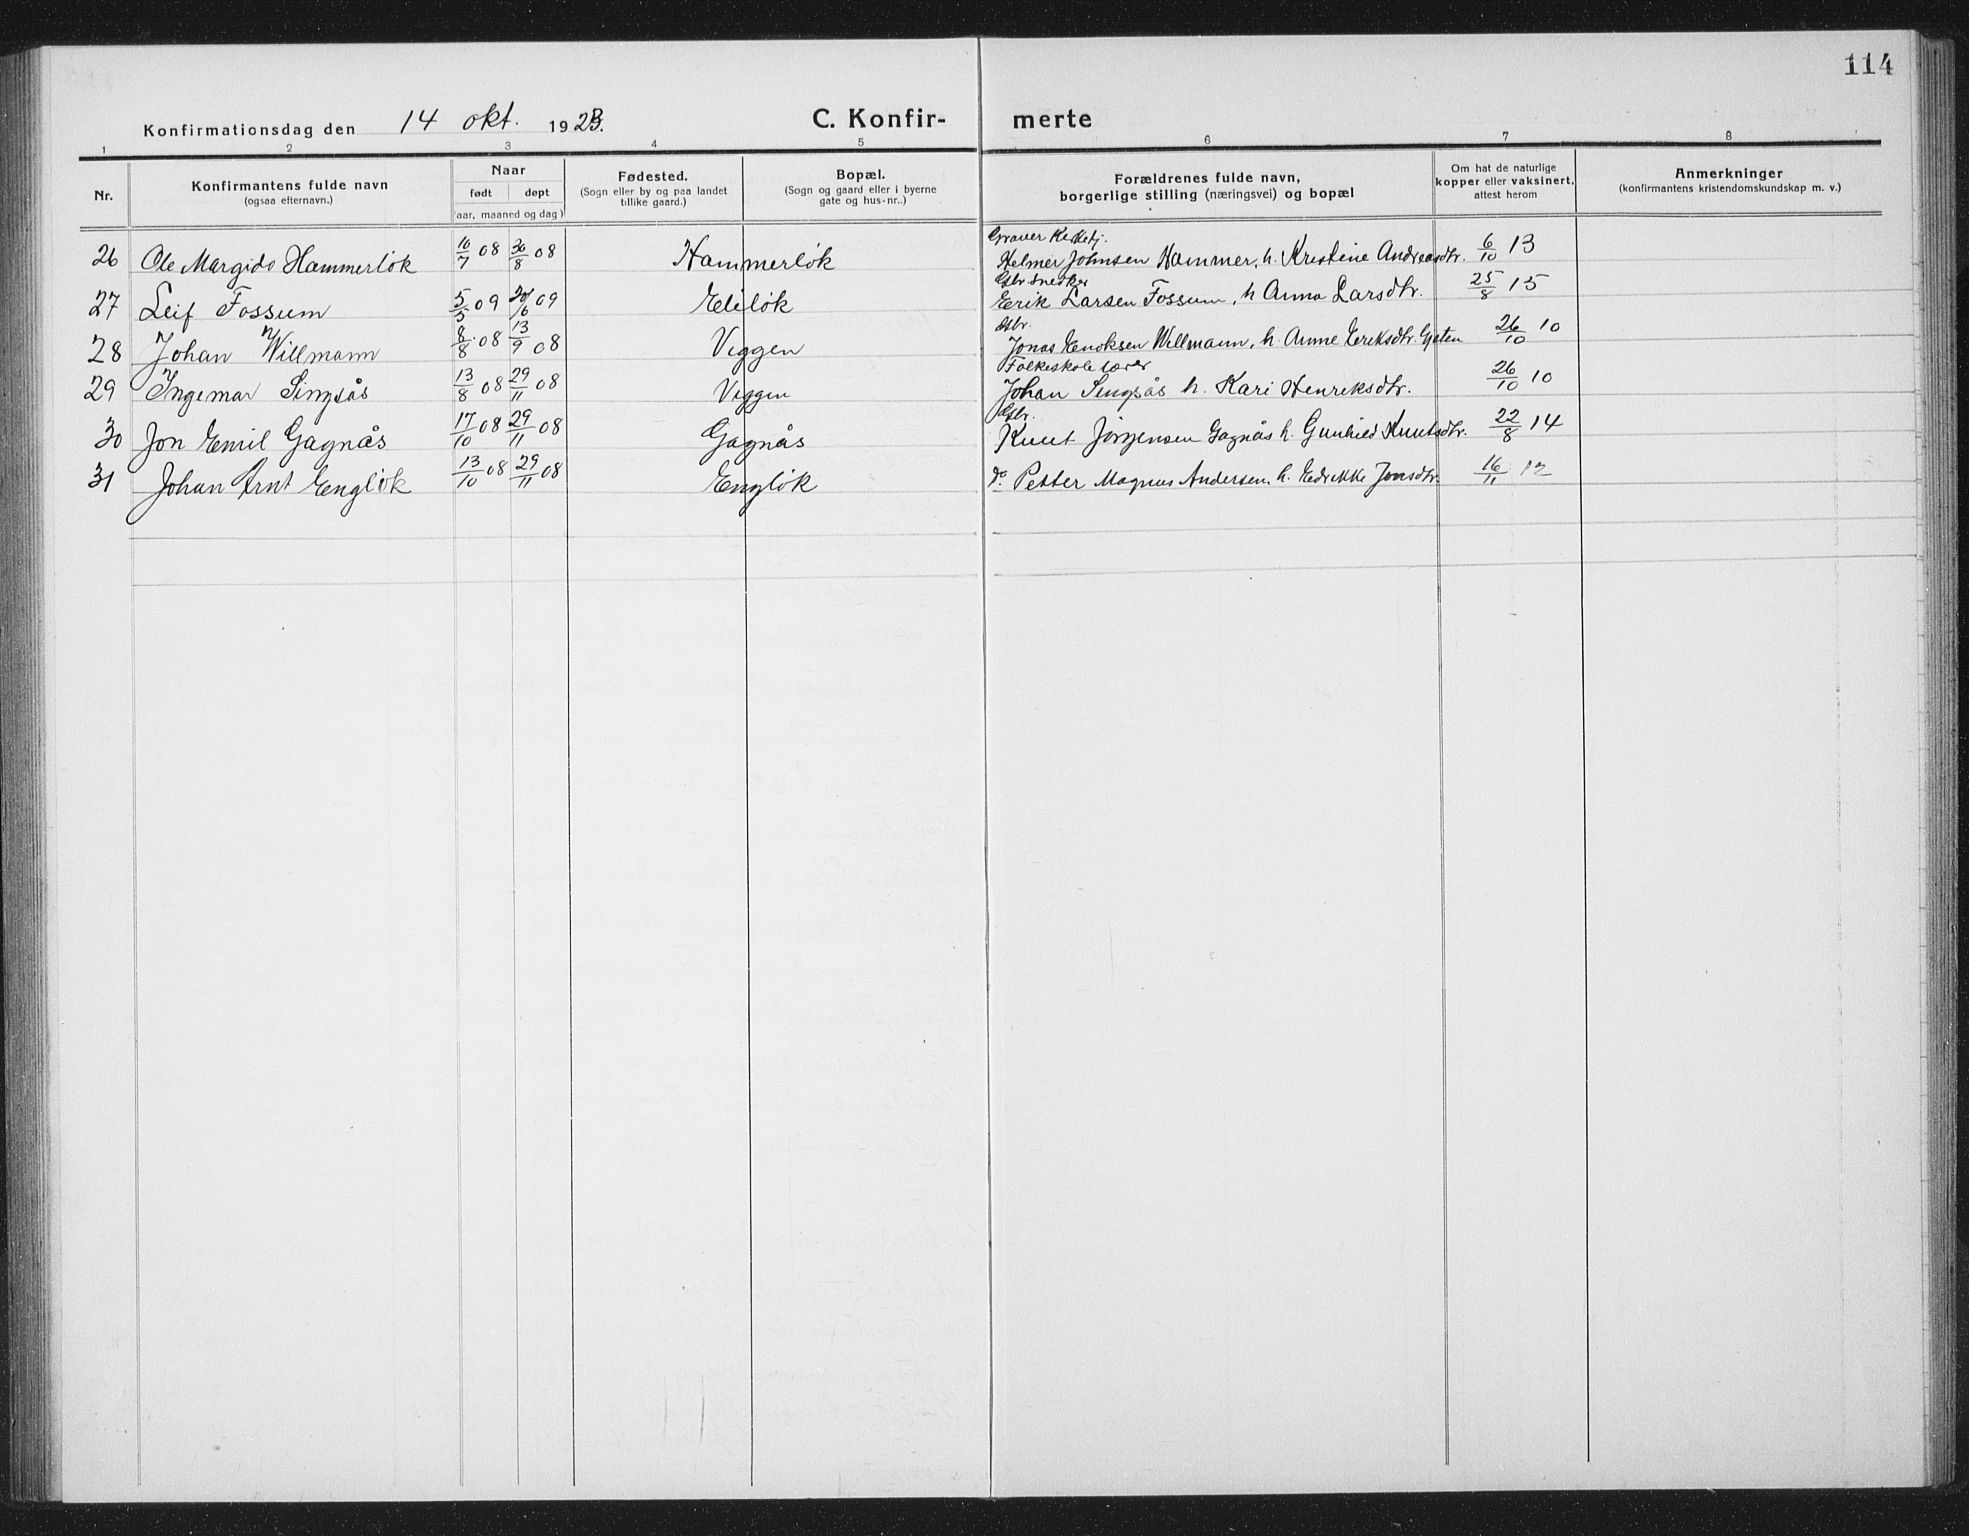 114
Konfirmationsdag den 14 okt. 1923.
C. Konfir- merte
1 2 3 4 5 6 7 8
Nr.
Konfirmantens fulde navn
(ogsaa efternavn.)
Naar
født døpt
(aar, maaned og dag)
Fødested.
(Sogn eller by og paa landet
tillike gaard.)
Bopæl.
(Sogn og gaard eller i byerne
gate og hus-nr..)
Forældrenes fulde navn,
borgerlige stilling (næringsvei) og bopæl
Om hat de naturlige
kopper eller vaksinert,
attest herom
Anmerkninger
(konfirmantens kristendomskundskap m. v.)
Graver
26 Ole Margido Hammerløk 10/7 08 30/8 08 Hammerløk Helmer Johnsen Hammer, h. Kristine Andreasdtr. 6/10 13
Gbr. snedker
27 Leif Fossum 5/5 09 20/6 09 Eliløk Erik Larsen Fossum, h Anna Larsdtr. 25/8 15
Gbr.
28 Johan Willmann 8/8 08 13/9 08 Viggen Jonas Enoksen Willmann, h. Anne Eriksdtr. 26/10 10
Folkeskolelærer
29 Ingemar Singsås 13/8 08 29/11 08 Viggen Johan Singsås h. Kari Henriksdtr. 26/10 10
Gbr.
30 Jon Emil Gagnås 17/10 08 29/11 08 Gagnås Knut Jörgensen Gagnås h. Gunhild Knutsdtr. 22/8 14
31 Johan Arnt Engløk 13/10 08 29/11 08 Engløk do. Petter Magnus Andersen, h. Jonsdtr. 16/11 12